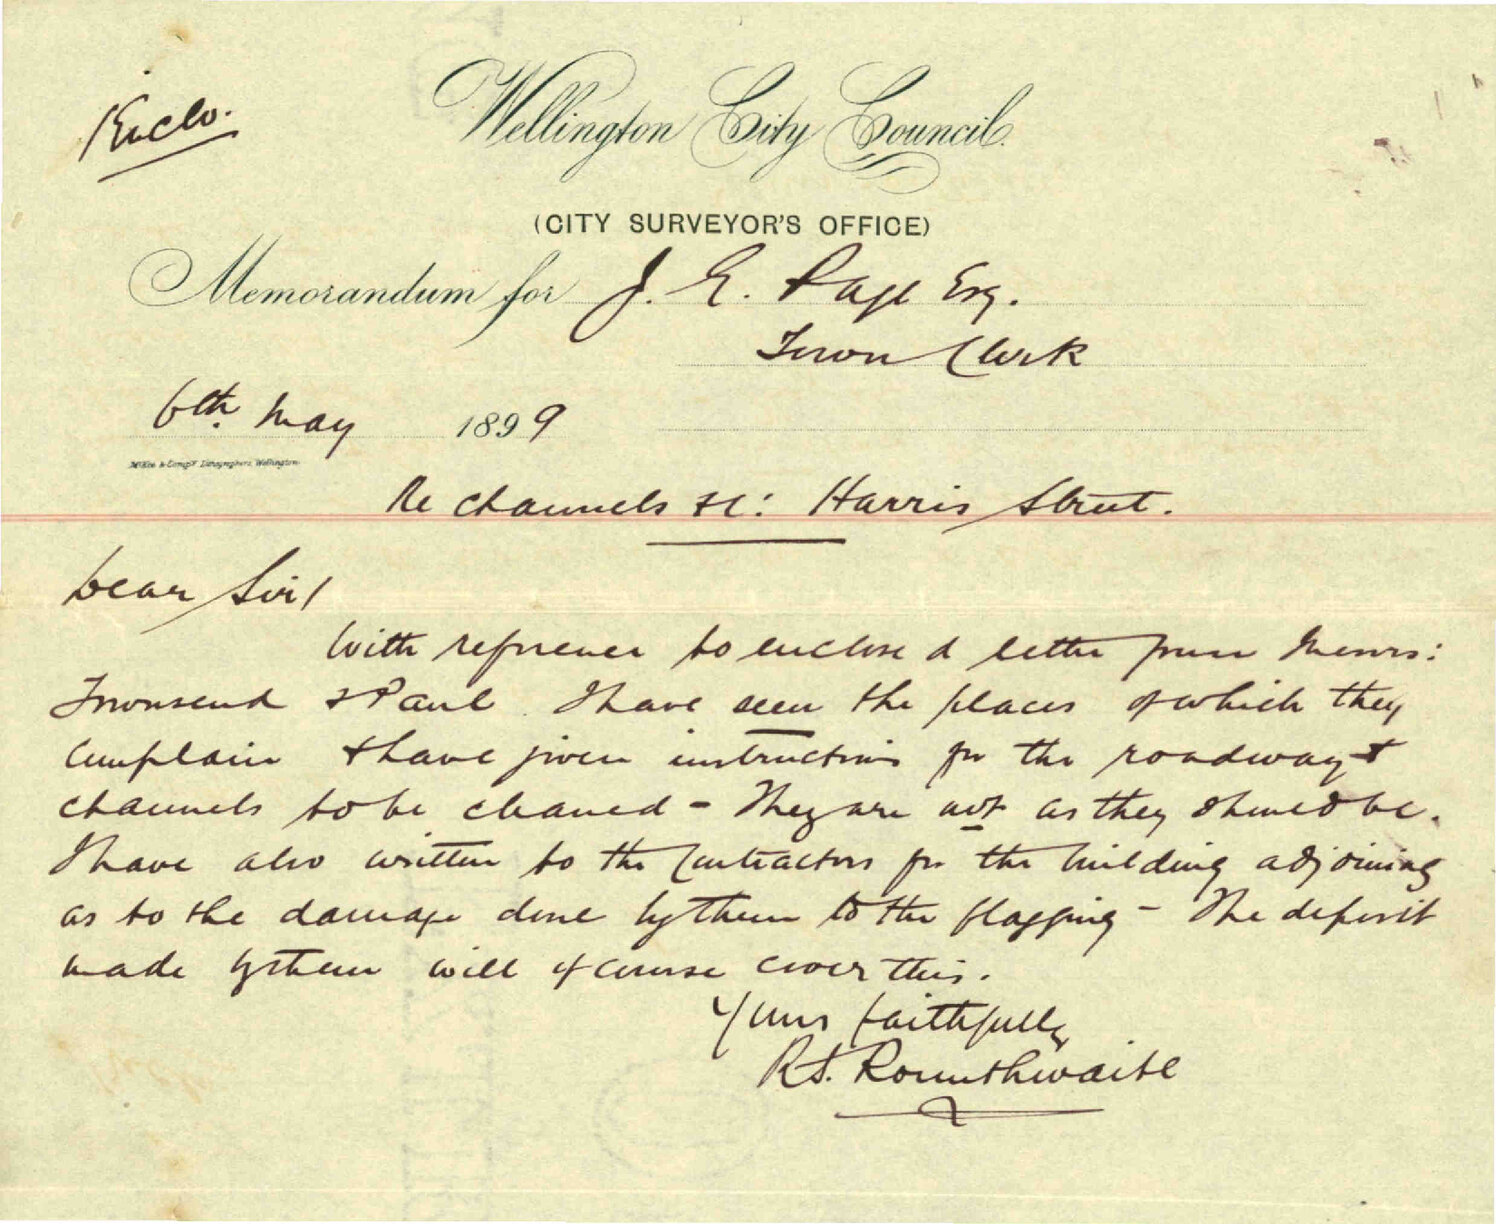 Enclo.
Wellington City Council.
(CITY SURVEYOR'S OFFICE)
Memorandum for J. E. Page Esq.
Town Clerk
6th. May 1899
McKee & Compy. Lithographers, Wellington
Re channels &c: Harris Street.
Dear Sir/
With reference to enclosed letter from Messrs:
Townsend & Paul I have seen the places of which they
complain & have given instructions for the roadway &
channels to be cleaned - They are not as they should be.
I have also written to the Contractors for the building adjoining
as to the damage done by them to the flagging - The deposit
made by them will of course cover this.
Yours faithfully
R. S. Rounthwaite